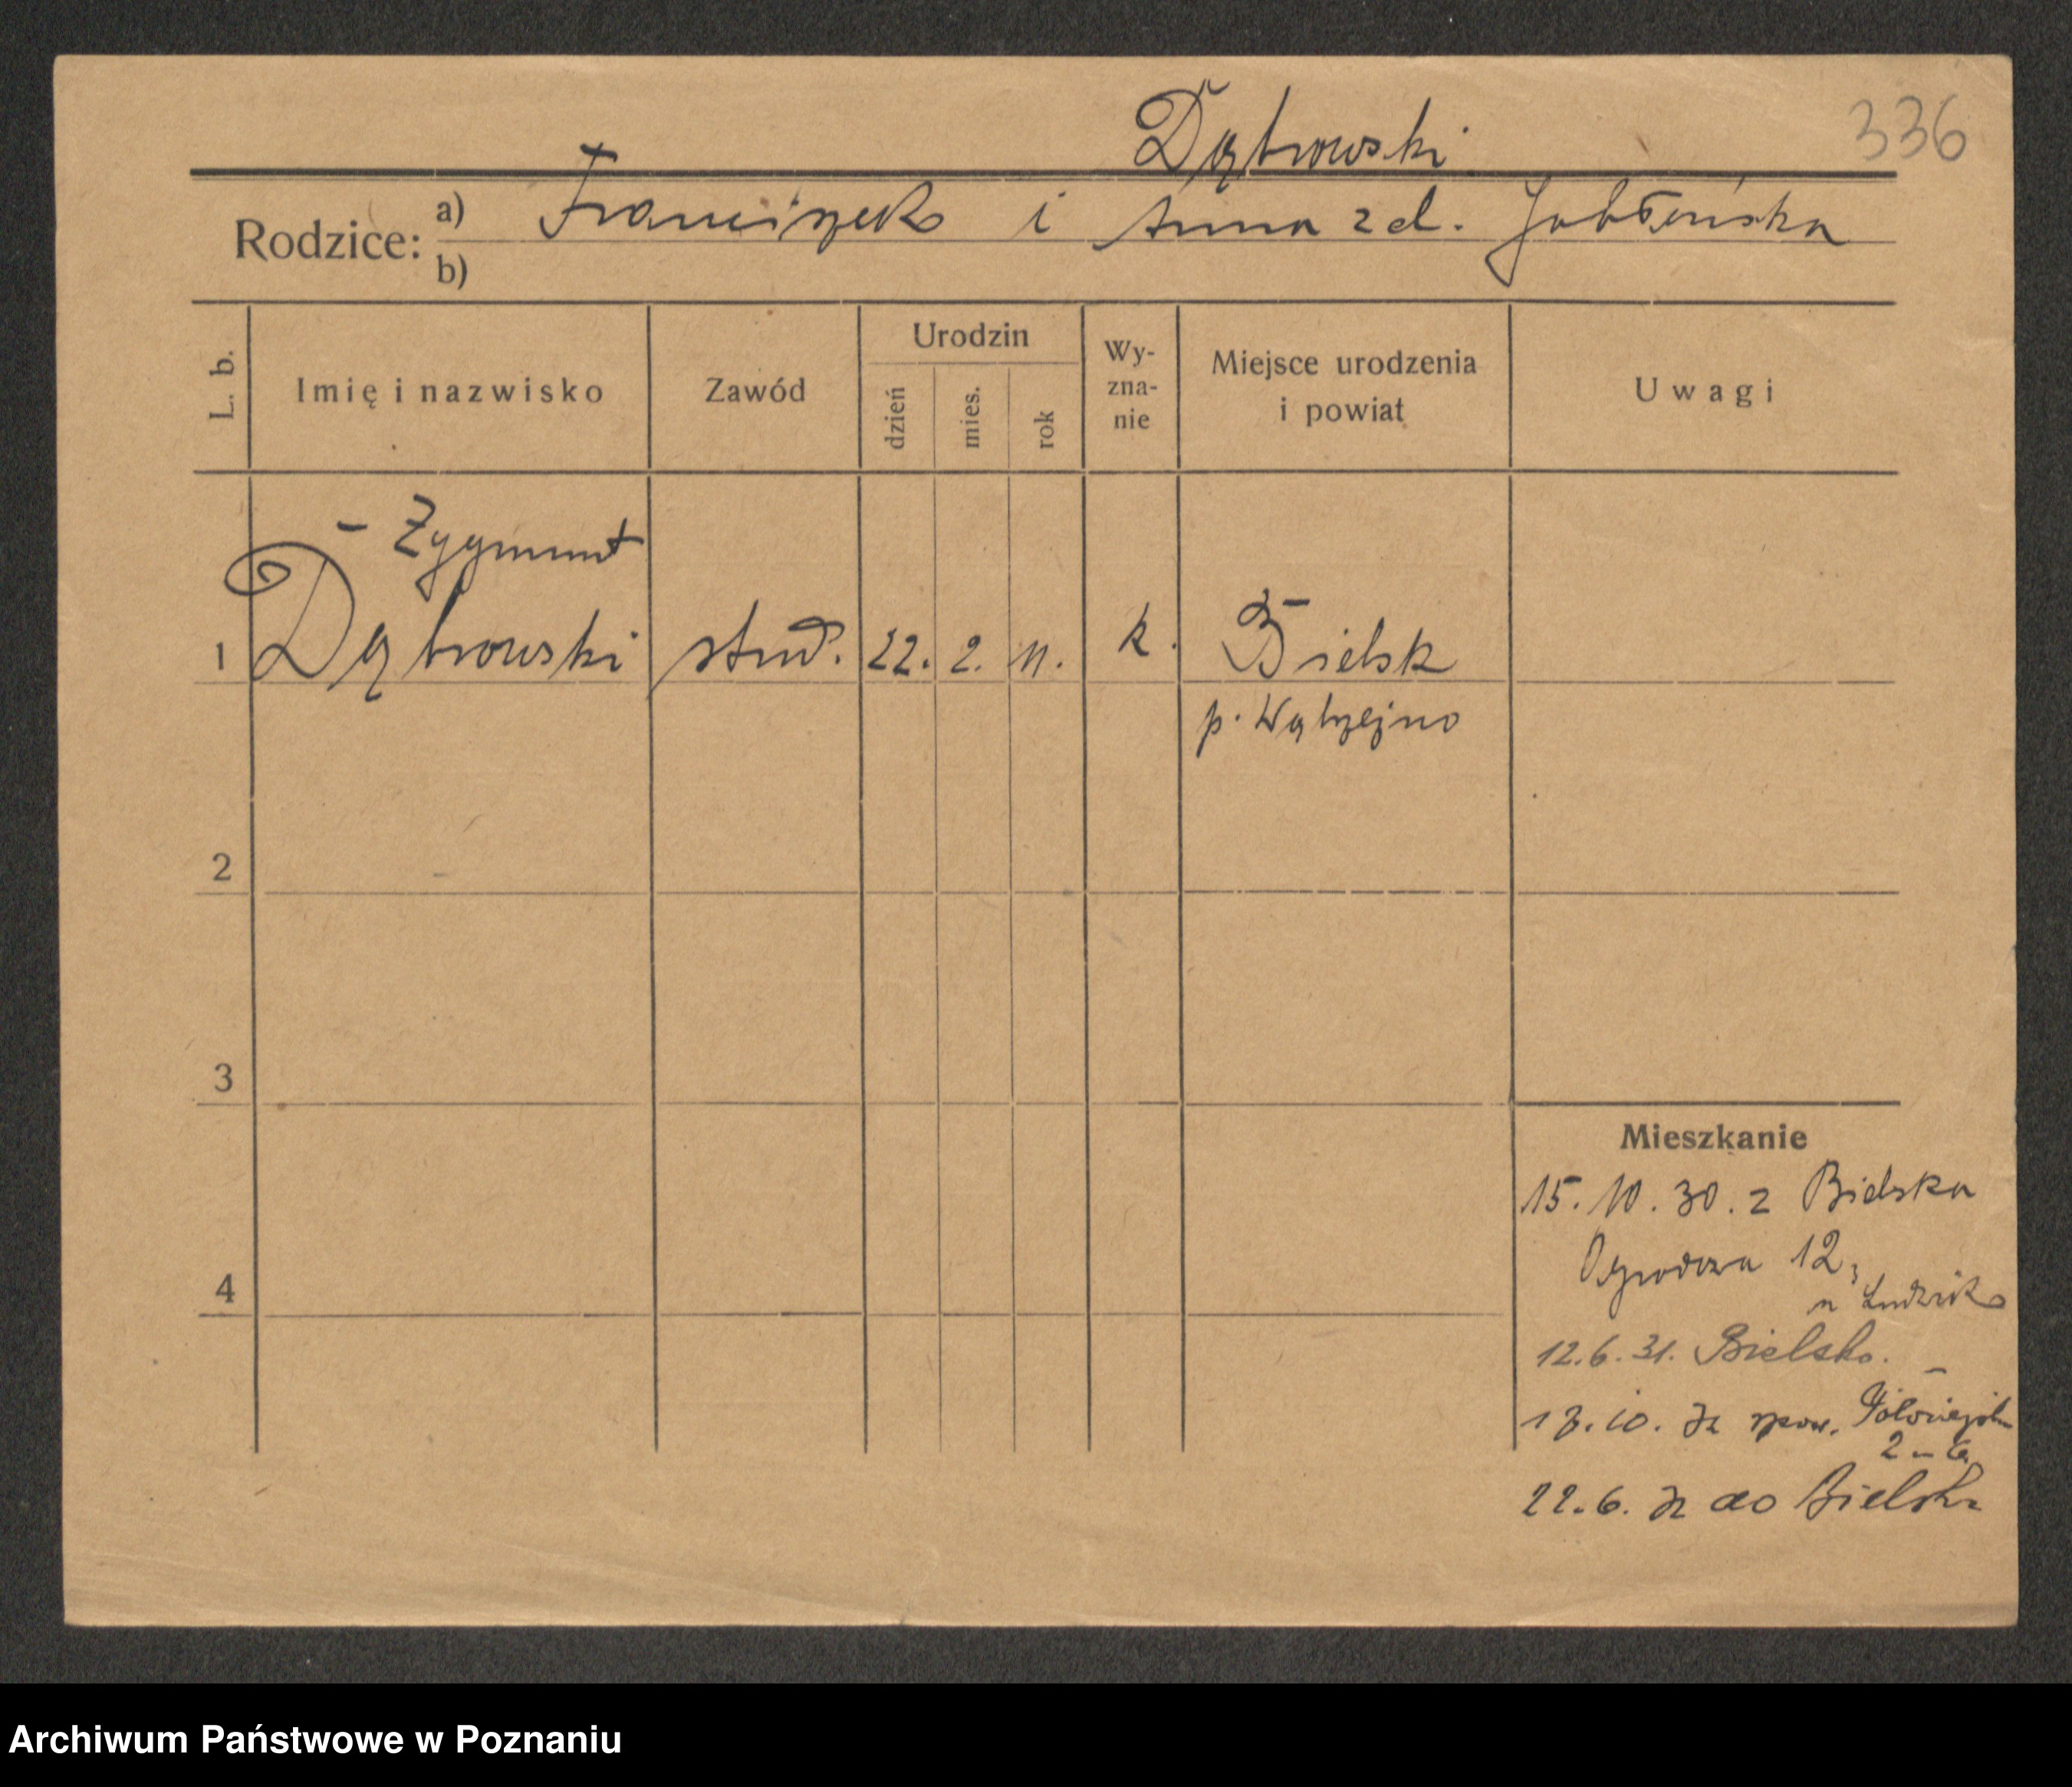 Dąbrowski 336
Rodzice: a) Franciszek i Anna z d. Jabłońska
b)
L. b. Imię i nazwisko Zawód Urodzin dzień mies. rok Wy-zna-nie Miejsce urodzenia i powiat Uwagi
– Zygmunt
1 Dąbrowski stud. 22. 2. 11. k. Bielsk
p. Wąbrzeźno
2
3
Mieszkanie
15. 10. 30. z Bielska
Ogrodowa 12,
4
12. 6. 31. Bielsko. –
10. spow.
22. 6. do Bielska
Archiwum Państwowe w Poznaniu